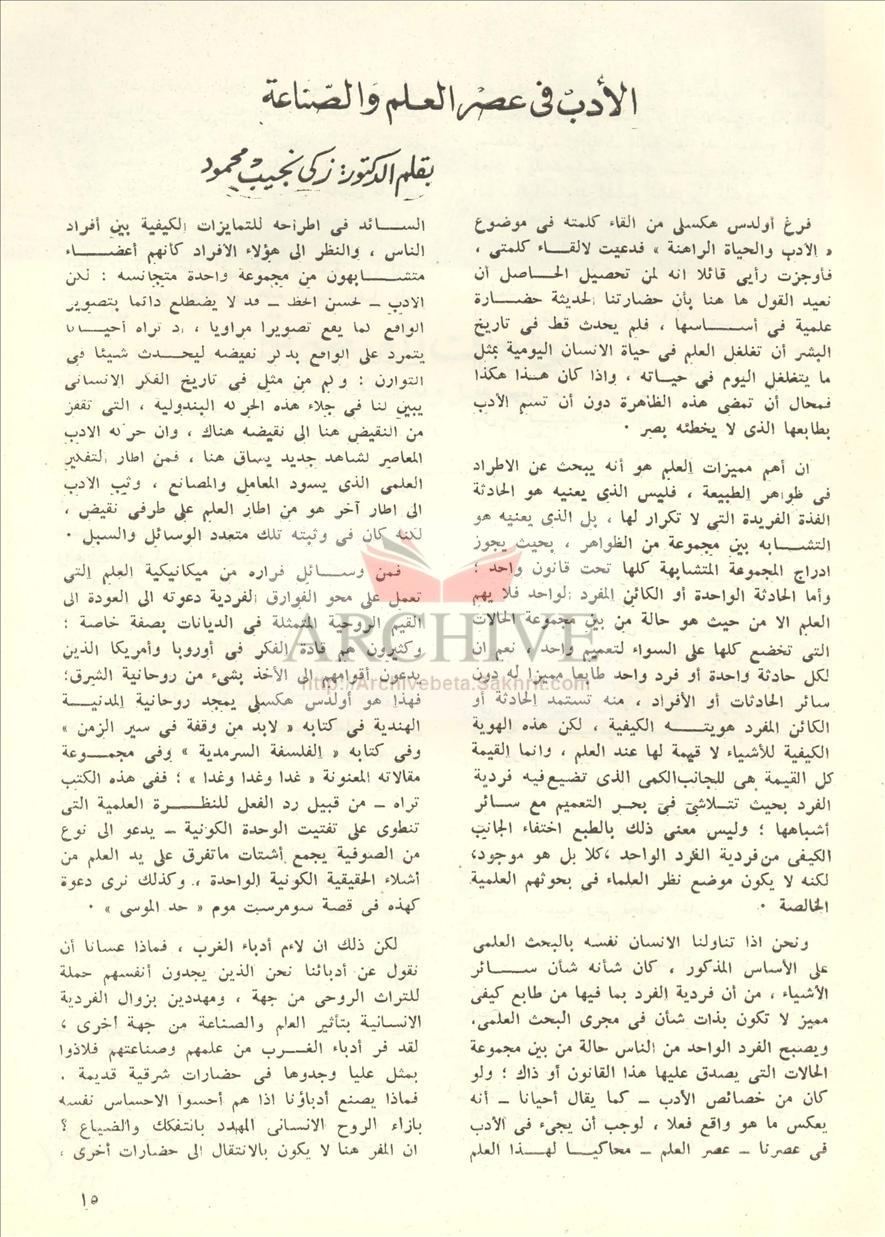 الأدب في عصر العلم والصناعة
بقلم الدكتور: زكي نجيب محمود
فرغ أولدس هكسلى من القاء كلمته فى موضوع
« الأدب والحياة الراهنة » فدعيت لالقاء كلمتى ،
فأوجزت رأيى قائلا انه لمن تحصيل الحاصل أن
نعيد القول ها هنا بأن حضارتنا الحديثة حضارة
علمية فى أساسها ، فلم يحدث قط فى تاريخ
البشر أن تغلغل العلم فى حياة الانسان اليومية بمثل
ما يتغلغل اليوم فى حياته ، واذا كان هذا هكذا
فمحال أن تمضى هذه الظاهرة دون أن تسم الأدب
بطابعها الذى لا يخطئه بصر .
ان أهم مميزات العلم هو أنه يبحث عن الاطراد
فى ظواهر الطبيعة ، فليس الذى يعنيه هو الحادثة
الفذة الفريدة التى لا تكرار لها ، بل الذى يعنيه هو
التشابه بين مجموعة من الظواهر ، بحيث يجوز
ادراج المجموعة المتشابهة كلها تحت قانون واحد ؛
وأما الحادثة الواحدة أو الكائن المفرد الواحد فلا يهم
العلم الا من حيث هو حالة من بين مجموعة الحالات
التى تخضع كلها على السواء لتعميم واحد ، نعم ان
لكل حادثة واحدة أو فرد واحد طابعا مميزا له دون
سائر الحادثات أو الأفراد ، منه تستمد الحادثة أو
الكائن المفرد هويته الكيفية ، لكن هذه الهوية
الكيفية للأشياء لا قيمة لها عند العلم ، وانما القيمة
كل القيمة هى للجانب الكمى الذى تضيع فيه فردية
الفرد بحيث تتلاشى فى بحر التعميم مع سائر
أشباهها ؛ وليس معنى ذلك بالطبع اختفاء الجانب
الكيفى من فردية الفرد الواحد ، كلا بل هو موجود،
لكنه لا يكون موضع نظر العلماء فى بحوثهم العلمية
الخالصة .
ونحن اذا تناولنا الانسان نفسه بالبحث العلمى
على الأساس المذكور ، كان شأنه شأن سائر
الأشياء ، من أن فردية الفرد بما فيها من طابع كيفى
مميز لا تكون بذات شأن فى مجرى البحث العلمى.
ويصبح الفرد الواحد من الناس حالة من بين مجموعة
الحالات التى يصدق عليها هذا القانون أو ذاك ؛ ولو
كان من خصائص الأدب – كما يقال أحيانا – أنه
يعكس ما هو واقع فعلا ، لوجب أن يجىء فى الأدب
فى عصرنا – عصر العلم – محاكيا لهذا العلم
السائد فى اطراحه للتمايزات الكيفية بين أفراد
الناس ، والنظر الى هؤلاء الأفراد كأنهم أعضاء
متشابهون من مجموعة واحدة متجانسه : لكن
الادب – لحسن الحظ – قد لا يضطلع دائما بتصوير
الواقع كما يقع تصويرا مراويا ، اذ تراه أحيانا
يتمرد على الواقع بذكر نقيضه ليحدث شيئا فى
التوازن : وكم من مثل فى تاريخ الفكر الانسانى
يبين لنا فى جلاء هذه الحركه البندولية ، التى تقفز
من النقيض هنا الى نقيضه هناك ، وان حركه الادب
المعاصر لشاهد جديد يساق هنا ، فمن اطار التفكير
العلمى الذى يسود المعامل والمصانع ، وثب الادب
الى اطار آخر هو من اطار العلم على طرفى نقيض ،
لكنه كان فى وثبته تلك متعدد الوسائل والسبل .
فمن وسائل فراره من ميكانيكية العلم التى
تعمل على محو الفوارق الفردية دعوته الى العودة الى
القيم الروحية المتمثلة فى الديانات بصفة خاصة ؛
وكثيرون هم قادة الفكر فى أوروبا وأمريكا الذين
يدعون أقوامهم الى الأخذ بشىء من روحانية الشرق؛
فهذا هو أولدس هكسلى يمجد روحانية المدنية
الهندية فى كتابه « لابد من وقفة فى سير الزمن »
وفى كتابه « الفلسفة السرمدية » وفى مجموعة
مقالاته المعنونة « غدا وغدا وغدا » ؛ ففى هذه الكتب
تراه – من قبيل رد الفعل للنظرة العلمية التى
تنطوى على تفتيت الوحدة الكونية – يدعو الى نوع
من الصوفية يجمع أشتات ماتفرق على يد العلم من
أشلاء الحقيقية الكونية الواحدة ، وكذلك نرى دعوة
كهذه فى قصة سومرست موم « حد الموسى » .
لكن ذلك ان لاءم أدباء الغرب ، فماذا عسانا أن
نقول عن أدبائنا نحن الذين يجدون أنفسهم حملة
للتراث الروحى من جهة ، ومهددين بزوال الفردية
الانسانية بتأثير العلم والصناعة من جهة أخرى ،
لقد فر أدباء الغرب من علمهم وصناعتهم فلاذوا
بمثل عليا وجدوها فى حضارات شرقية قديمة .
فماذا يصنع أدباؤنا اذا هم أحسوا الاحساس نفسه
بازاء الروح الانسانى المهدد بالتفكك والضياع ؟
ان المفر هنا لا يكون بالانتقال الى حضارات أخرى ،
ARCHIVE
http://Archivebeta.Sakhrit.com
١٥